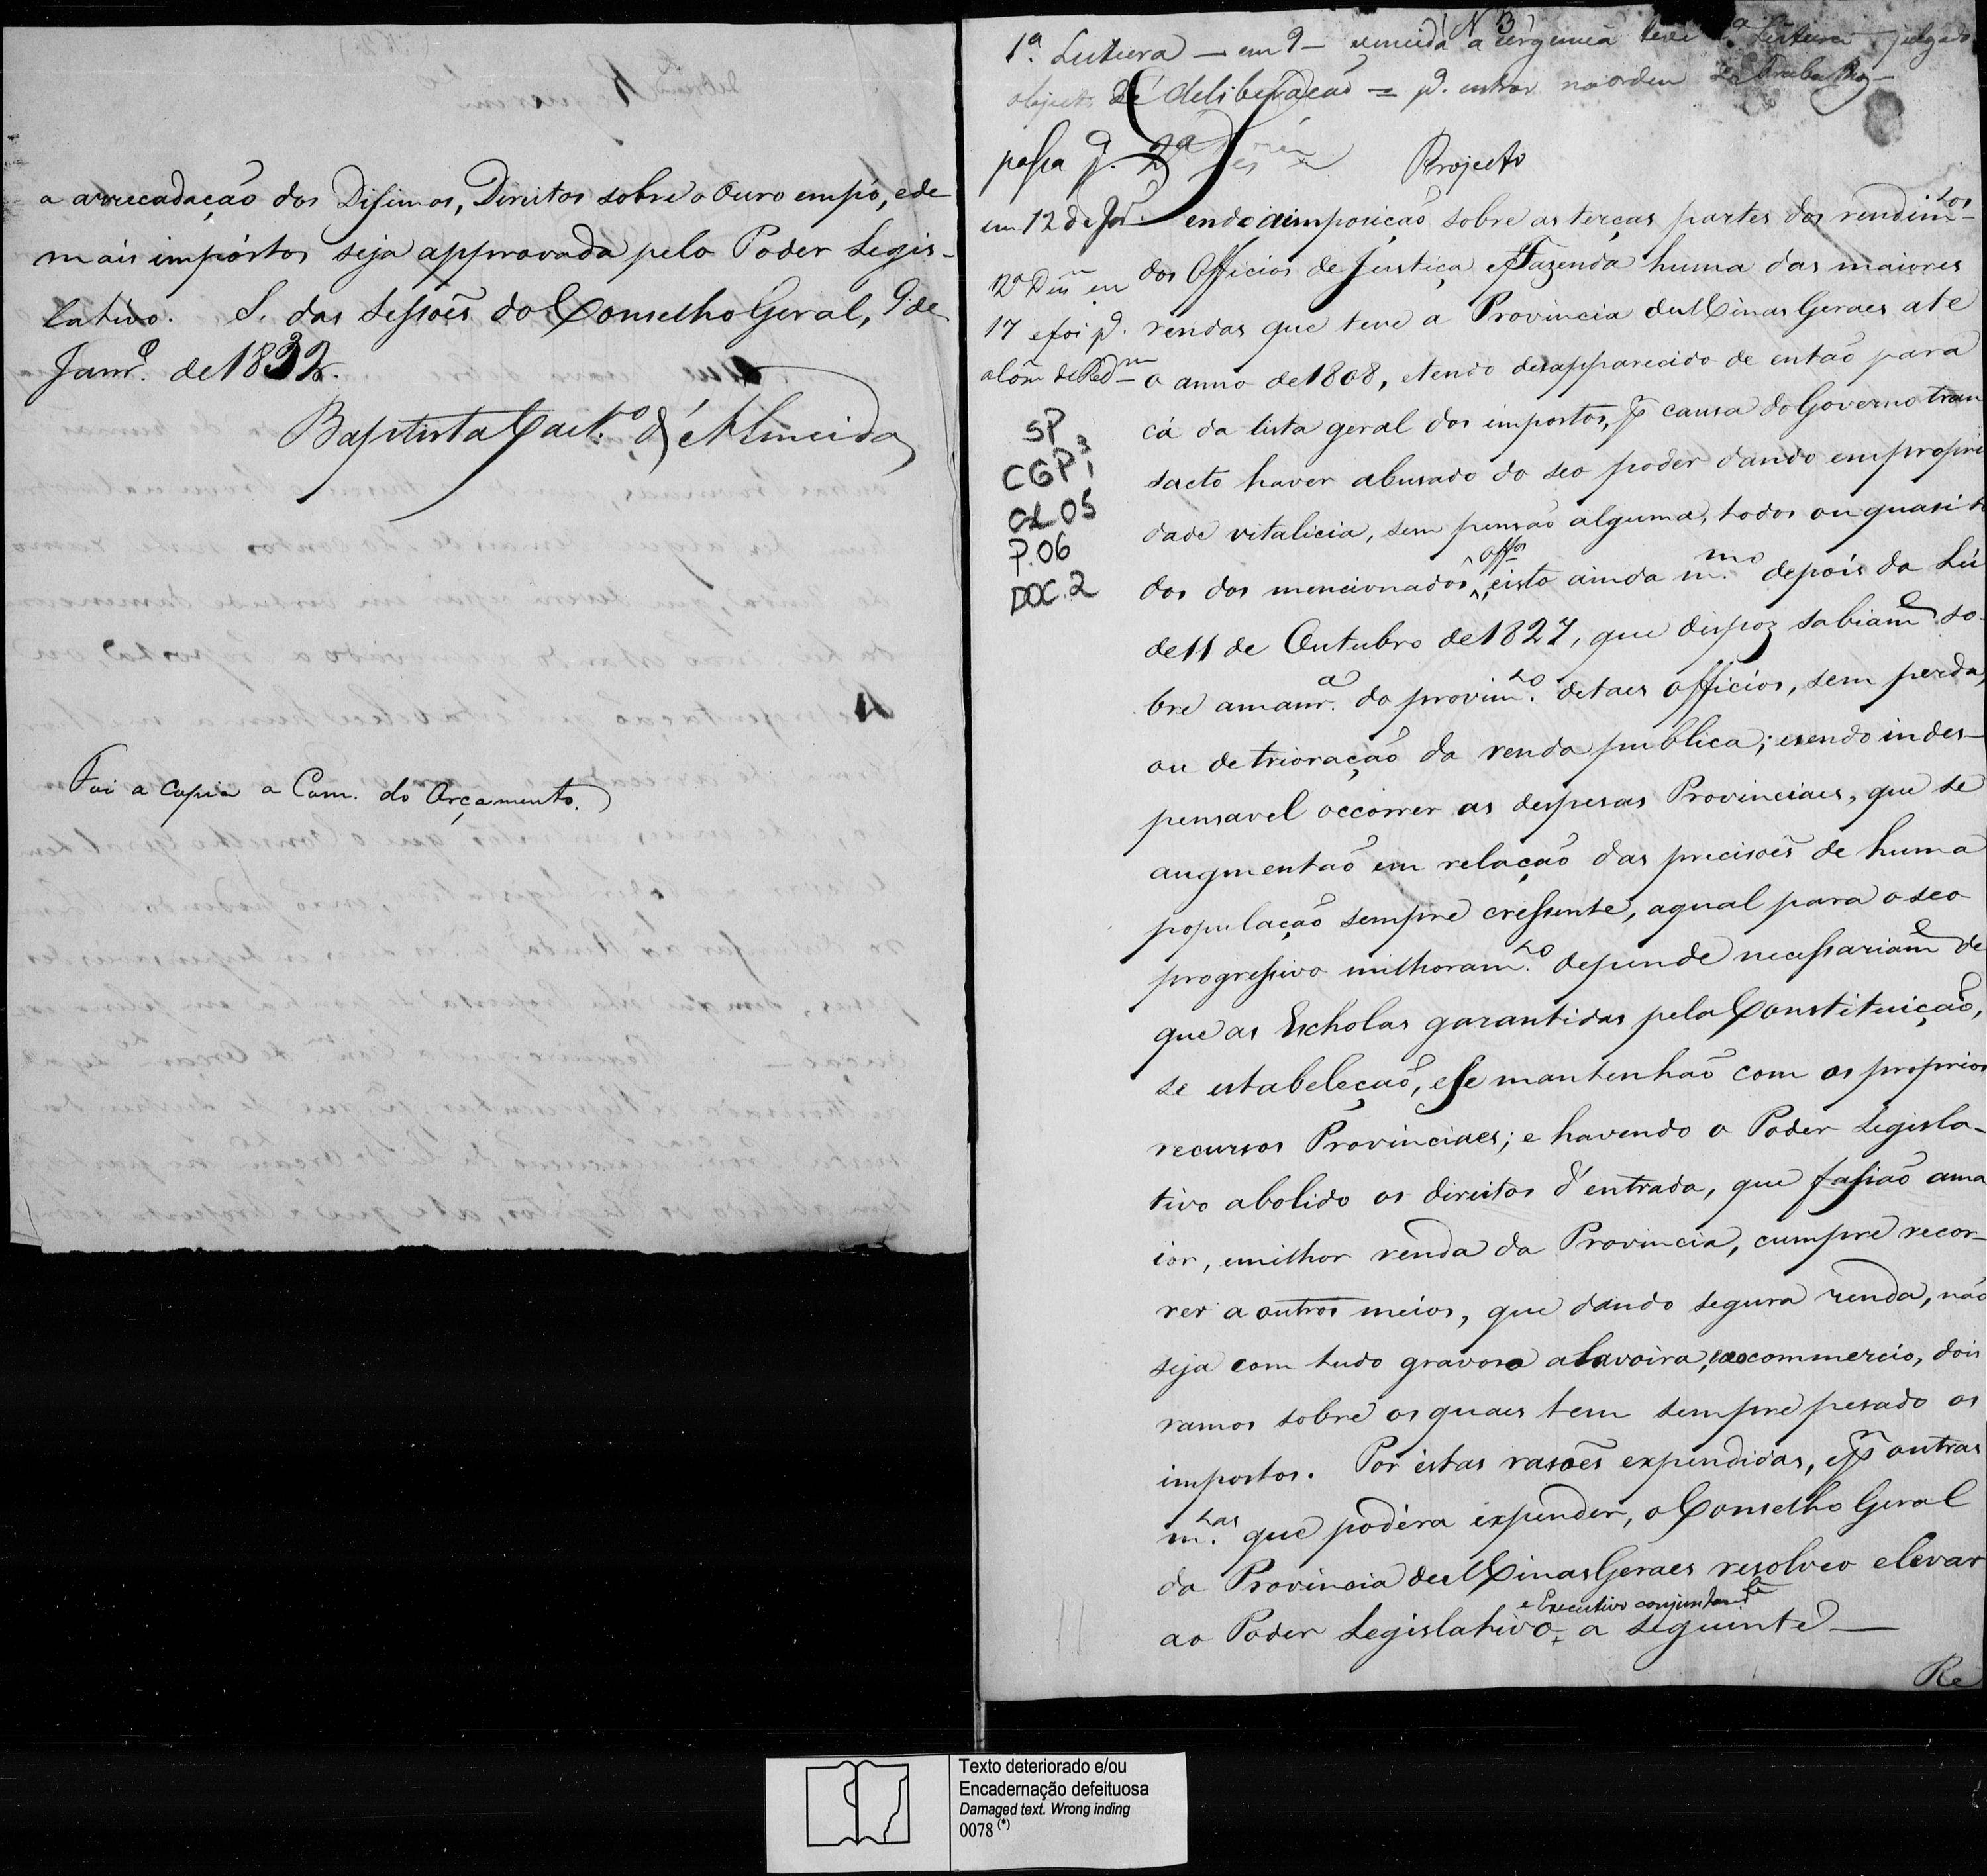 a arrecadação dos Disimos, Direitos sobre o Ouro em pó, e de
mais impóstos seja approvada pelo Poder Legis-
lativo. S. das Sessões do Conselho Geral, 9 de
Janr.º de 1832.
Baptista Caet.º d'Almeida
Foi a Copia a Com. do Orçamento.
N 3
1ª Leitura — em 9 — vencida a urgencia teve 2ª Leitura, julgado
objecto de deliberação = p.ª entrar na ordem de trabalhos —
passa p.ª 2ª
em 12 de Jan.
2ª Dis. em
17 e foi p.ª
a Com. de Red.m
SP
CGP¹ 3
CX 05
P. 06
DOC. 2
Projecto
Sendo a imposição sobre as terças partes dos rendim.tos
dos Officios de Justiça e Fazenda huma das maiores
rendas que teve a Provincia de Minas Geraes ate
o anno de 1808, e tendo desapparecido de então para
cá da lista geral dos impostos, p.r causa do Governo tran
sacto haver abusado do seo poder dando em proprie
dade vitalicia, sem pensão alguma, todos ou quasi to
dos dos mencionados off.os e isto ainda m.mo depois da Lei
de 11 de Outubro de 1827, que dispoz sabiam.e so-
bre a manr.ª do provim.to de taes officios, sem perda,
ou detrioração da renda publica; e sendo indes-
pensavel occorrer as despesas Provinciaes, que se
augmentão em relação das precisoẽs de huma
população sempre cressente, a qual para o seo
progressivo milhoram.to depende necessariam.e de
que as Escholas garantidas pela Constituição,
se estabeleção, e se mantenhão com os proprios
recursos Provinciaes; e havendo o Poder Legisla-
tivo abolido os direitos d'entrada, que fasião a ma
ior, e milhor renda da Provincia, cumpre recor-
rer a outros meios, que dando segura renda, não
seja com tudo gravoso a Lavoira, e ao commercio, dois
ramos sobre os quaes tem sempre pesado os
impostos. Por estas rasões expendidas, e p.r outras
m.tas que podéra expender, o Conselho Geral
da Provincia de Minas Geraes resolveo elevar
ao Poder Legislativo e Executivo conjuntam.te a seguinte —
Re
Texto deteriorado e/ou
Encadernação defeituosa
Damaged text. Wrong inding
0078 (*)